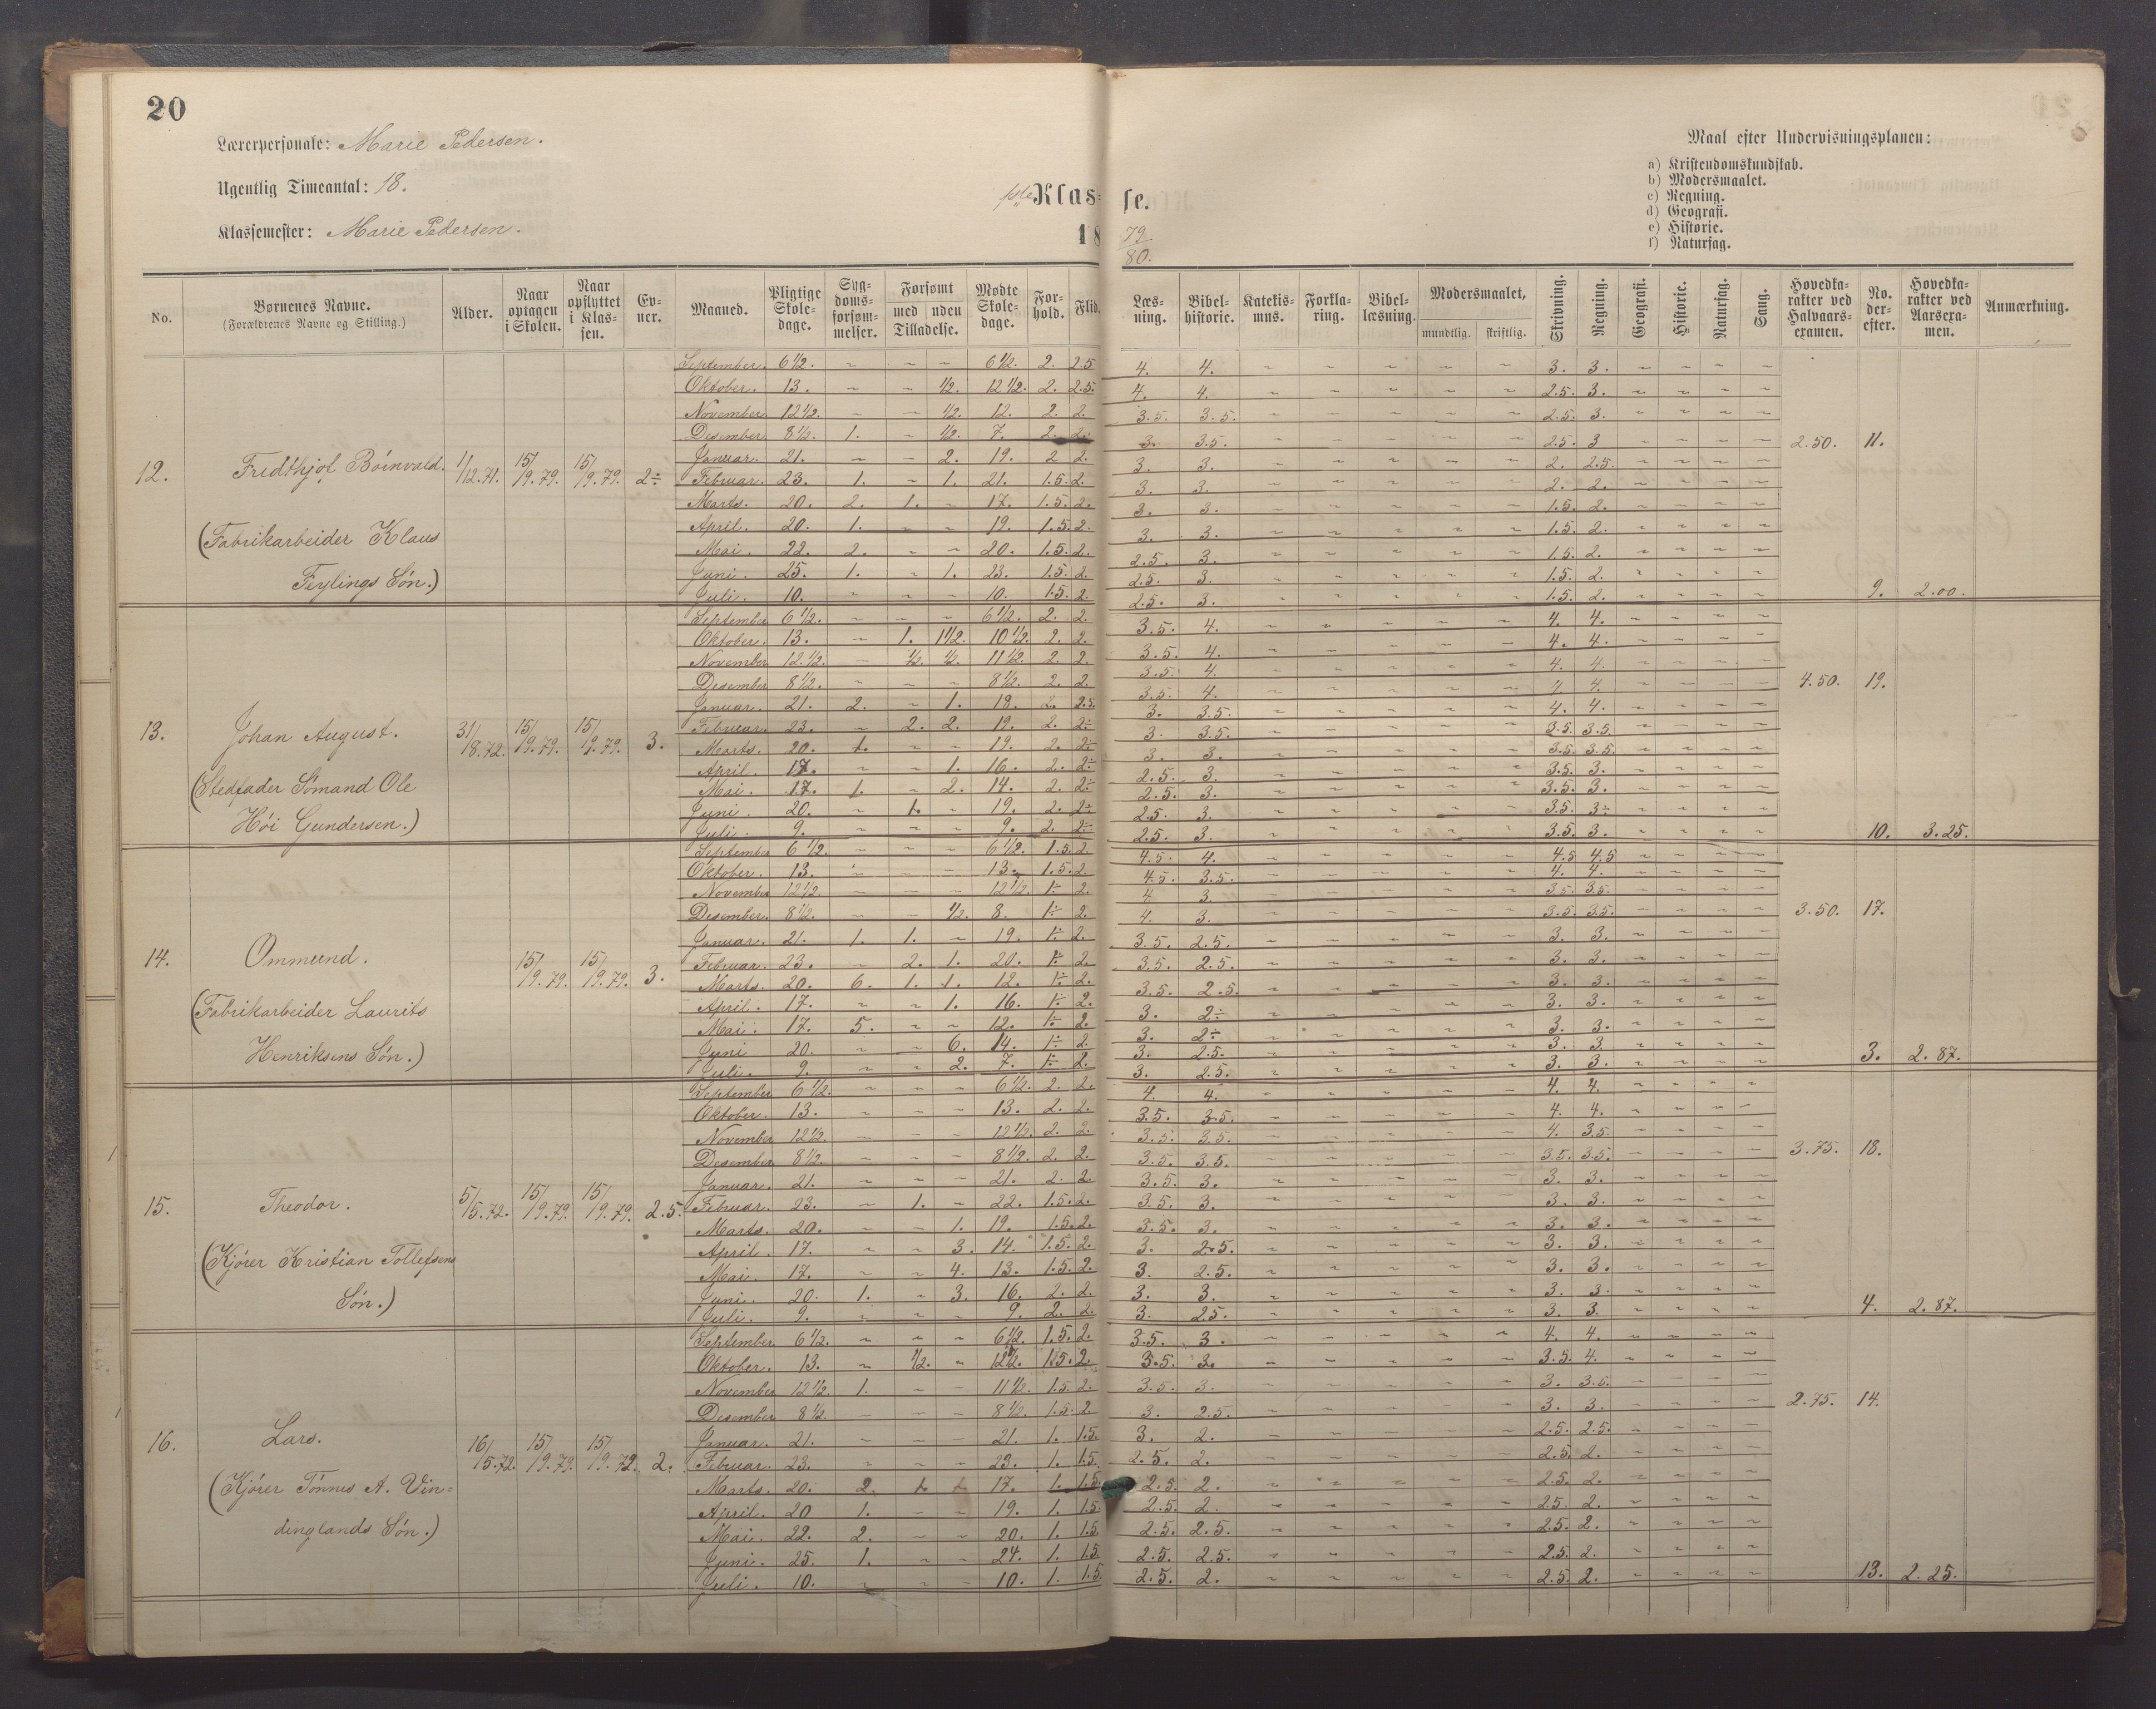 20
Lærerpersonale: Marie Pedersen.
Ugentlig Timeantal: 18.
Klassemester: Marie Pedersen.
1ste Klasse.
18 79/80.
Maal efter Undervisningsplanen:
a) Kristendomskundskab.
b) Modersmaalet.
c) Regning.
d) Geografi.
e) Historie.
f) Naturfag.
No. Børnenes Navne. (Forældrenes Navne og Stilling.) Alder. Naar optagen i Skolen. Naar opflyttet i Klassen. Evner. Maaned. Pligtige Skoledage. Sygdomsforsømmelser. Forsømt med uden Tilladelse. Mødte Skoledage. Forhold. Flid. Læsning. Bibelhistorie. Katekismus. Forklaring. Bibellæsning. Modersmaalet, mundtlig. skriftlig. Skrivning. Regning. Geografi. Historie. Naturfag. Sang. Hovedkarakter ved Halvaarsexamen. No. derefter. Hovedkarakter ved Aarsexamen. Anmærkning.
September. 6 1/2. ~ ~ ~ 6 1/2. 2. 2.5 4. 4. ~ ~ ~ ~ ~ 3. 3. ~ ~ ~ ~
Oktober. 13. ~ ~ 1/2. 12 1/2. 2. 2.5. 4. 4. ~ ~ ~ ~ ~ 2.5. 3. ~ ~ ~ ~
November. 12 1/2. ~ ~ 1/2. 12. 2. 2. 3.5. 3.5. ~ ~ ~ ~ ~ 2.5. 3. ~ ~ ~ ~
Desember. 8 1/2. 1. ~ 1/2. 7. 2. 2. 3. 3.5. ~ ~ ~ ~ ~ 2.5. 3 ~ ~ ~ ~ 2.50. 11.
Januar. 21. ~ ~ 2. 19. 2 2. 3. 3. ~ ~ ~ ~ ~ 2. 2.5. ~ ~ ~ ~
12. Fredthjof Boinvald. 1/12.71. 15/9.79. 15/9.79. 2÷ Februar. 23. 1. ~ 1. 21. 1.5. 2. 3. 3. ~ ~ ~ ~ ~ 2. 2. ~ ~ ~ ~
Marts. 20. 2. 1. ~ 17. 1.5. 2. 3. 3. ~ ~ ~ ~ ~ 1.5. 2. ~ ~ ~ ~
April. 20. 1. ~ ~ 19. 1.5. 2. 3. 3. ~ ~ ~ ~ ~ 1.5. 2. ~ ~ ~ ~
(Fabrikarbeider Klaus Mai. 22. 2. ~ ~ 20. 1.5. 2. 2.5. 3. ~ ~ ~ ~ ~ 1.5. 2. ~ ~ ~ ~
Feylings Søn.) Juni. 25. 1. ~ 1. 23. 1.5. 2. 2.5. 3. ~ ~ ~ ~ ~ 1.5. 2. ~ ~ ~ ~
Juli. 10. ~ ~ ~ 10. 1.5. 2. 2.5. 3. ~ ~ ~ ~ ~ 1.5. 2. ~ ~ ~ ~ 9. 2.00.
September 6 1/2. ~ ~ ~ 6 1/2. 2. 2. 3.5. 4. ~ ~ ~ ~ ~ 4. 4. ~ ~ ~ ~
Oktober. 13. ~ 1. 1 1/2. 10 1/2. 2. 2. 3.5. 4. ~ ~ ~ ~ ~ 4. 4. ~ ~ ~ ~
November 12 1/2. ~ 1/2. 1/2. 11 1/2. 2. 2. 3.5. 4. ~ ~ ~ ~ ~ 4. 4. ~ ~ ~ ~
Desember 8 1/2. ~ ~ ~ 8 1/2. 2. 2. 3.5. 4. ~ ~ ~ ~ ~ 4. 4. ~ ~ ~ ~ 4.50. 19.
Januar. 21. 2. ~ 1. 18. 2. 2.5. 3. 3.5. ~ ~ ~ ~ ~ 4. 4. ~ ~ ~ ~
13. Johan August. 31/8.72. 15/9.79. 15/9.79. 3. Februar. 23. ~ 2. 2. 19. 2. 2÷ 3. 3.5. ~ ~ ~ ~ ~ 3.5. 3.5. ~ ~ ~ ~
Marts. 20. 1. ~ ~ 19. 2. 2÷ 3. 3. ~ ~ ~ ~ ~ 3.5. 3.5. ~ ~ ~ ~
April. 17. ~ ~ 1. 16. 2. 2÷ 2.5. 3. ~ ~ ~ ~ ~ 3.5. 3. ~ ~ ~ ~
(Stedfader Sømand Ole Mai. 17. 1. ~ 2. 14. 2. 2÷ 2.5. 3. ~ ~ ~ ~ ~ 3.5. 3. ~ ~ ~ ~
Høi Gundersen.) Juni. 20. ~ 1. ~ 19. 2. 2÷ 2.5. 3. ~ ~ ~ ~ ~ 3.5. 3÷ ~ ~ ~ ~
Juli. 9. ~ ~ ~ 9. 2. 2÷ 2.5. 3. ~ ~ ~ ~ ~ 3.5. 3. ~ ~ ~ ~ 10. 3.25.
September 6 1/2. ~ ~ ~ 6 1/2. 1.5. 2 4.5. 4. ~ ~ ~ ~ ~ 4.5 4.5 ~ ~ ~ ~
Oktober. 13. ~ ~ ~ 13. 1.5. 2. 4.5. 3.5. ~ ~ ~ ~ ~ 4. 4. ~ ~ ~ ~
November 12 1/2. ~ ~ ~ 12 1/2. 1÷ 2. 4. 3. ~ ~ ~ ~ ~ 3.5. 3.5. ~ ~ ~ ~
Desember. 8 1/2. ~ ~ 1/2. 8. 1÷ 2. 4. 3. ~ ~ ~ ~ ~ 3.5. 3.5. ~ ~ ~ ~ 3.50. 17.
Januar. 21. 1. 1. ~ 19. 1÷ 2. 3.5. 2.5. ~ ~ ~ ~ ~ 3. 3. ~ ~ ~ ~
14. Ommund. 15/9.79. 15/9.79. 3. Februar. 23. ~ 2. 1. 20. 1÷ 2. 3.5. 2.5. ~ ~ ~ ~ ~ 3. 3. ~ ~ ~ ~
Marts. 20. 6. 1. 1. 12. 1÷ 2. 3.5. 2.5. ~ ~ ~ ~ ~ 3. 3. ~ ~ ~ ~
(Fabrikarbeider Laurits April. 17. ~ ~ 1. 16. 1÷ 2. 3. 2÷ ~ ~ ~ ~ ~ 3. 3. ~ ~ ~ ~
Mai. 17. 5. ~ ~ 12. 1÷ 2. 3. 2÷ ~ ~ ~ ~ ~ 3. 3. ~ ~ ~ ~
Henriksens Søn.) Juni 20. ~ ~ 6. 14. 1÷ 2. 3. 2.5. ~ ~ ~ ~ ~ 3. 3. ~ ~ ~ ~
Juli. 9. ~ ~ 2. 7. 1÷ 2. 3. 2.5. ~ ~ ~ ~ ~ 3. 3. ~ ~ ~ ~ 3. 2.87.
September 6 1/2. ~ ~ ~ 6 1/2. 2. 2. 4. 4. ~ ~ ~ ~ ~ 4. 4. ~ ~ ~ ~
Oktober. 13. ~ ~ ~ 13. 2. 2. 3.5. 3.5. ~ ~ ~ ~ ~ 4. 4. ~ ~ ~ ~
November 12 1/2. ~ ~ ~ 12 1/2. 2. 2. 3.5. 3.5. ~ ~ ~ ~ ~ 4. 3.5. ~ ~ ~ ~
Desember 8 1/2. ~ ~ ~ 8 1/2. 2. 2. 3.5. 3.5. ~ ~ ~ ~ ~ 3.5. 3.5. ~ ~ ~ ~ 3.75. 18.
Januar. 21. ~ ~ ~ 21. 2. 2. 3.5. 3. ~ ~ ~ ~ ~ 3. 3. ~ ~ ~ ~
15. Theodor. 5/5.72. 15/9.79. 15/9.79. 2.5. Februar. 23. ~ 1. ~ 22. 1.5. 2. 3.5. 3. ~ ~ ~ ~ ~ 3. 3. ~ ~ ~ ~
Marts. 20. ~ ~ 1. 19. 1.5. 2. 3.5. 3. ~ ~ ~ ~ ~ 3. 3. ~ ~ ~ ~
(Kjører Kristian Tollefsens April. 17. ~ ~ 3. 14. 1.5. 2. 3. 2.5. ~ ~ ~ ~ ~ 3. 3. ~ ~ ~ ~
Mai. 17. ~ ~ 4. 13. 1.5. 2. 3. 2.5. ~ ~ ~ ~ ~ 3. 3. ~ ~ ~ ~
Søn.) Juni. 20. 1. ~ 3. 16. 2. 2. 3. 3. ~ ~ ~ ~ ~ 3. 3. ~ ~ ~ ~
Juli. 9. ~ ~ ~ 9. 2. 2. 3. 2.5. ~ ~ ~ ~ ~ 3. 3. ~ ~ ~ ~ 4. 2.87.
September 6 1/2. ~ ~ ~ 6 1/2. 1.5. 2. 3.5. 3. ~ ~ ~ ~ ~ 4. 4. ~ ~ ~ ~
Oktober. 13. ~ 1/2. ~ 12 1/2. 1.5. 2. 3.5. 3. ~ ~ ~ ~ ~ 3.5. 4. ~ ~ ~ ~
November 12 1/2. 1. ~ ~ 11 1/2. 1.5. 2. 3.5. 3. ~ ~ ~ ~ ~ 3. 3.5. ~ ~ ~ ~
Desember 8 1/2. ~ ~ ~ 8 1/2. 1.5. 2. 3. 2.5. ~ ~ ~ ~ ~ 3. 3. ~ ~ ~ ~ 2.75. 14.
Januar. 21. ~ ~ ~ 21. 1. 1.5. 3. 2. ~ ~ ~ ~ ~ 2.5. 2.5. ~ ~ ~ ~
16. Lars. 16/5.72. 15/9.79. 15/9.79. 2. Februar. 23. ~ ~ ~ 23. 1. 1.5. 2.5. 2. ~ ~ ~ ~ ~ 2.5. 2. ~ ~ ~ ~
(Kjører Tønnes A. Vin= Marts. 20. 2. 1. ~ 17. 1. 1.5. 2.5. 2. ~ ~ ~ ~ ~ 2.5. 2. ~ ~ ~ ~
April. 20 1. ~ ~ 19. 1. 1.5. 2.5. 2. ~ ~ ~ ~ ~ 2.5. 2. ~ ~ ~ ~
dinglands Søn.) Mai. 22. 2. ~ ~ 20. 1. 1.5. 2.5. 2.5. ~ ~ ~ ~ ~ 2.5. 2. ~ ~ ~ ~
Juni. 25. 1. ~ ~ 24. 1. 1.5. 2.5. 2.5. ~ ~ ~ ~ ~ 2.5. 2. ~ ~ ~ ~
Juli. 10. ~ ~ ~ 10. 1. 1.5. 2.5. 2. ~ ~ ~ ~ ~ 2.5. 2. ~ ~ ~ ~ 13. 2.25.